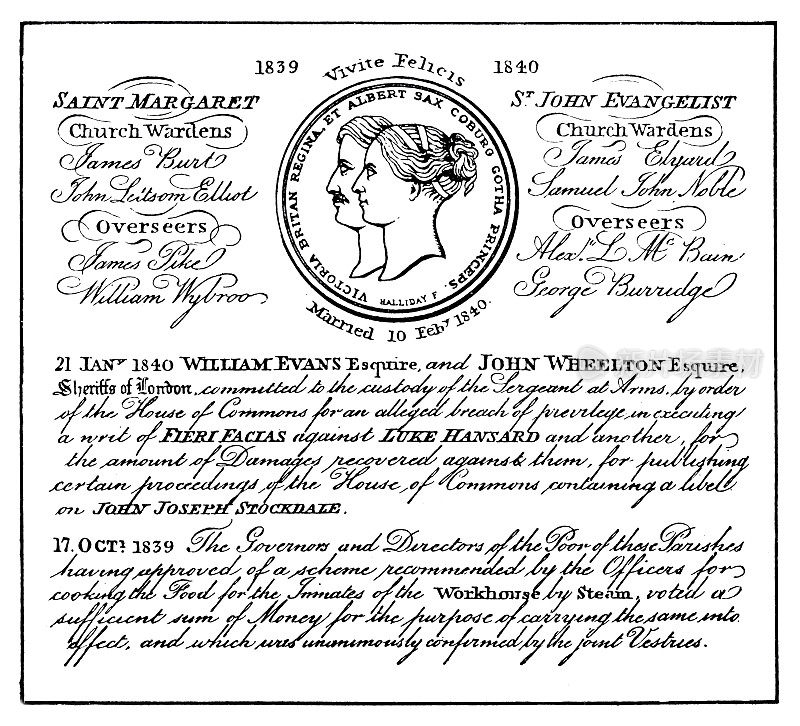 1839 Vivite Felicis 1840
SAINT MARGARET
Church Wardens
James Burt
John Leitsom Elliot
Overseers
James Pike
William Wybroo
VICTORIA BRITAN REGINA, ET ALBERT SAX COBURG GOTHA PRINCEPS.
HALLIDAY F.
Married 10 Feby 1840.
ST JOHN EVANGELIST
Church Wardens
James Elyard
Samuel John Noble
Overseers
Alexr L Mc Bain
George Burridge
21 JANY 1840 WILLIAM EVANS Esquire, and JOHN WHEELTON Esquire,
Sheriffs of London, committed to the custody of the Sergeant at Arms, by order
of the House of Commons for an alleged breach of previlege, in executing
a writ of FIERI FACIAS against LUKE HANSARD and another, for
the amount of Damages recovered against them, for publishing
certain proceedings of the House of Commons containing a libel
on JOHN JOSEPH STOCKDALE.
17. OCTR 1839 The Governors and Directors of the Poor of these Parishes
having approved of a scheme recommended by the Officers for
cooking the Food for the Inmates of the Workhouse by Steam, voted a
sufficient sum of Money for the purpose of carrying the same into
effect, and which was unanimously confirmed by the joint Vestries.